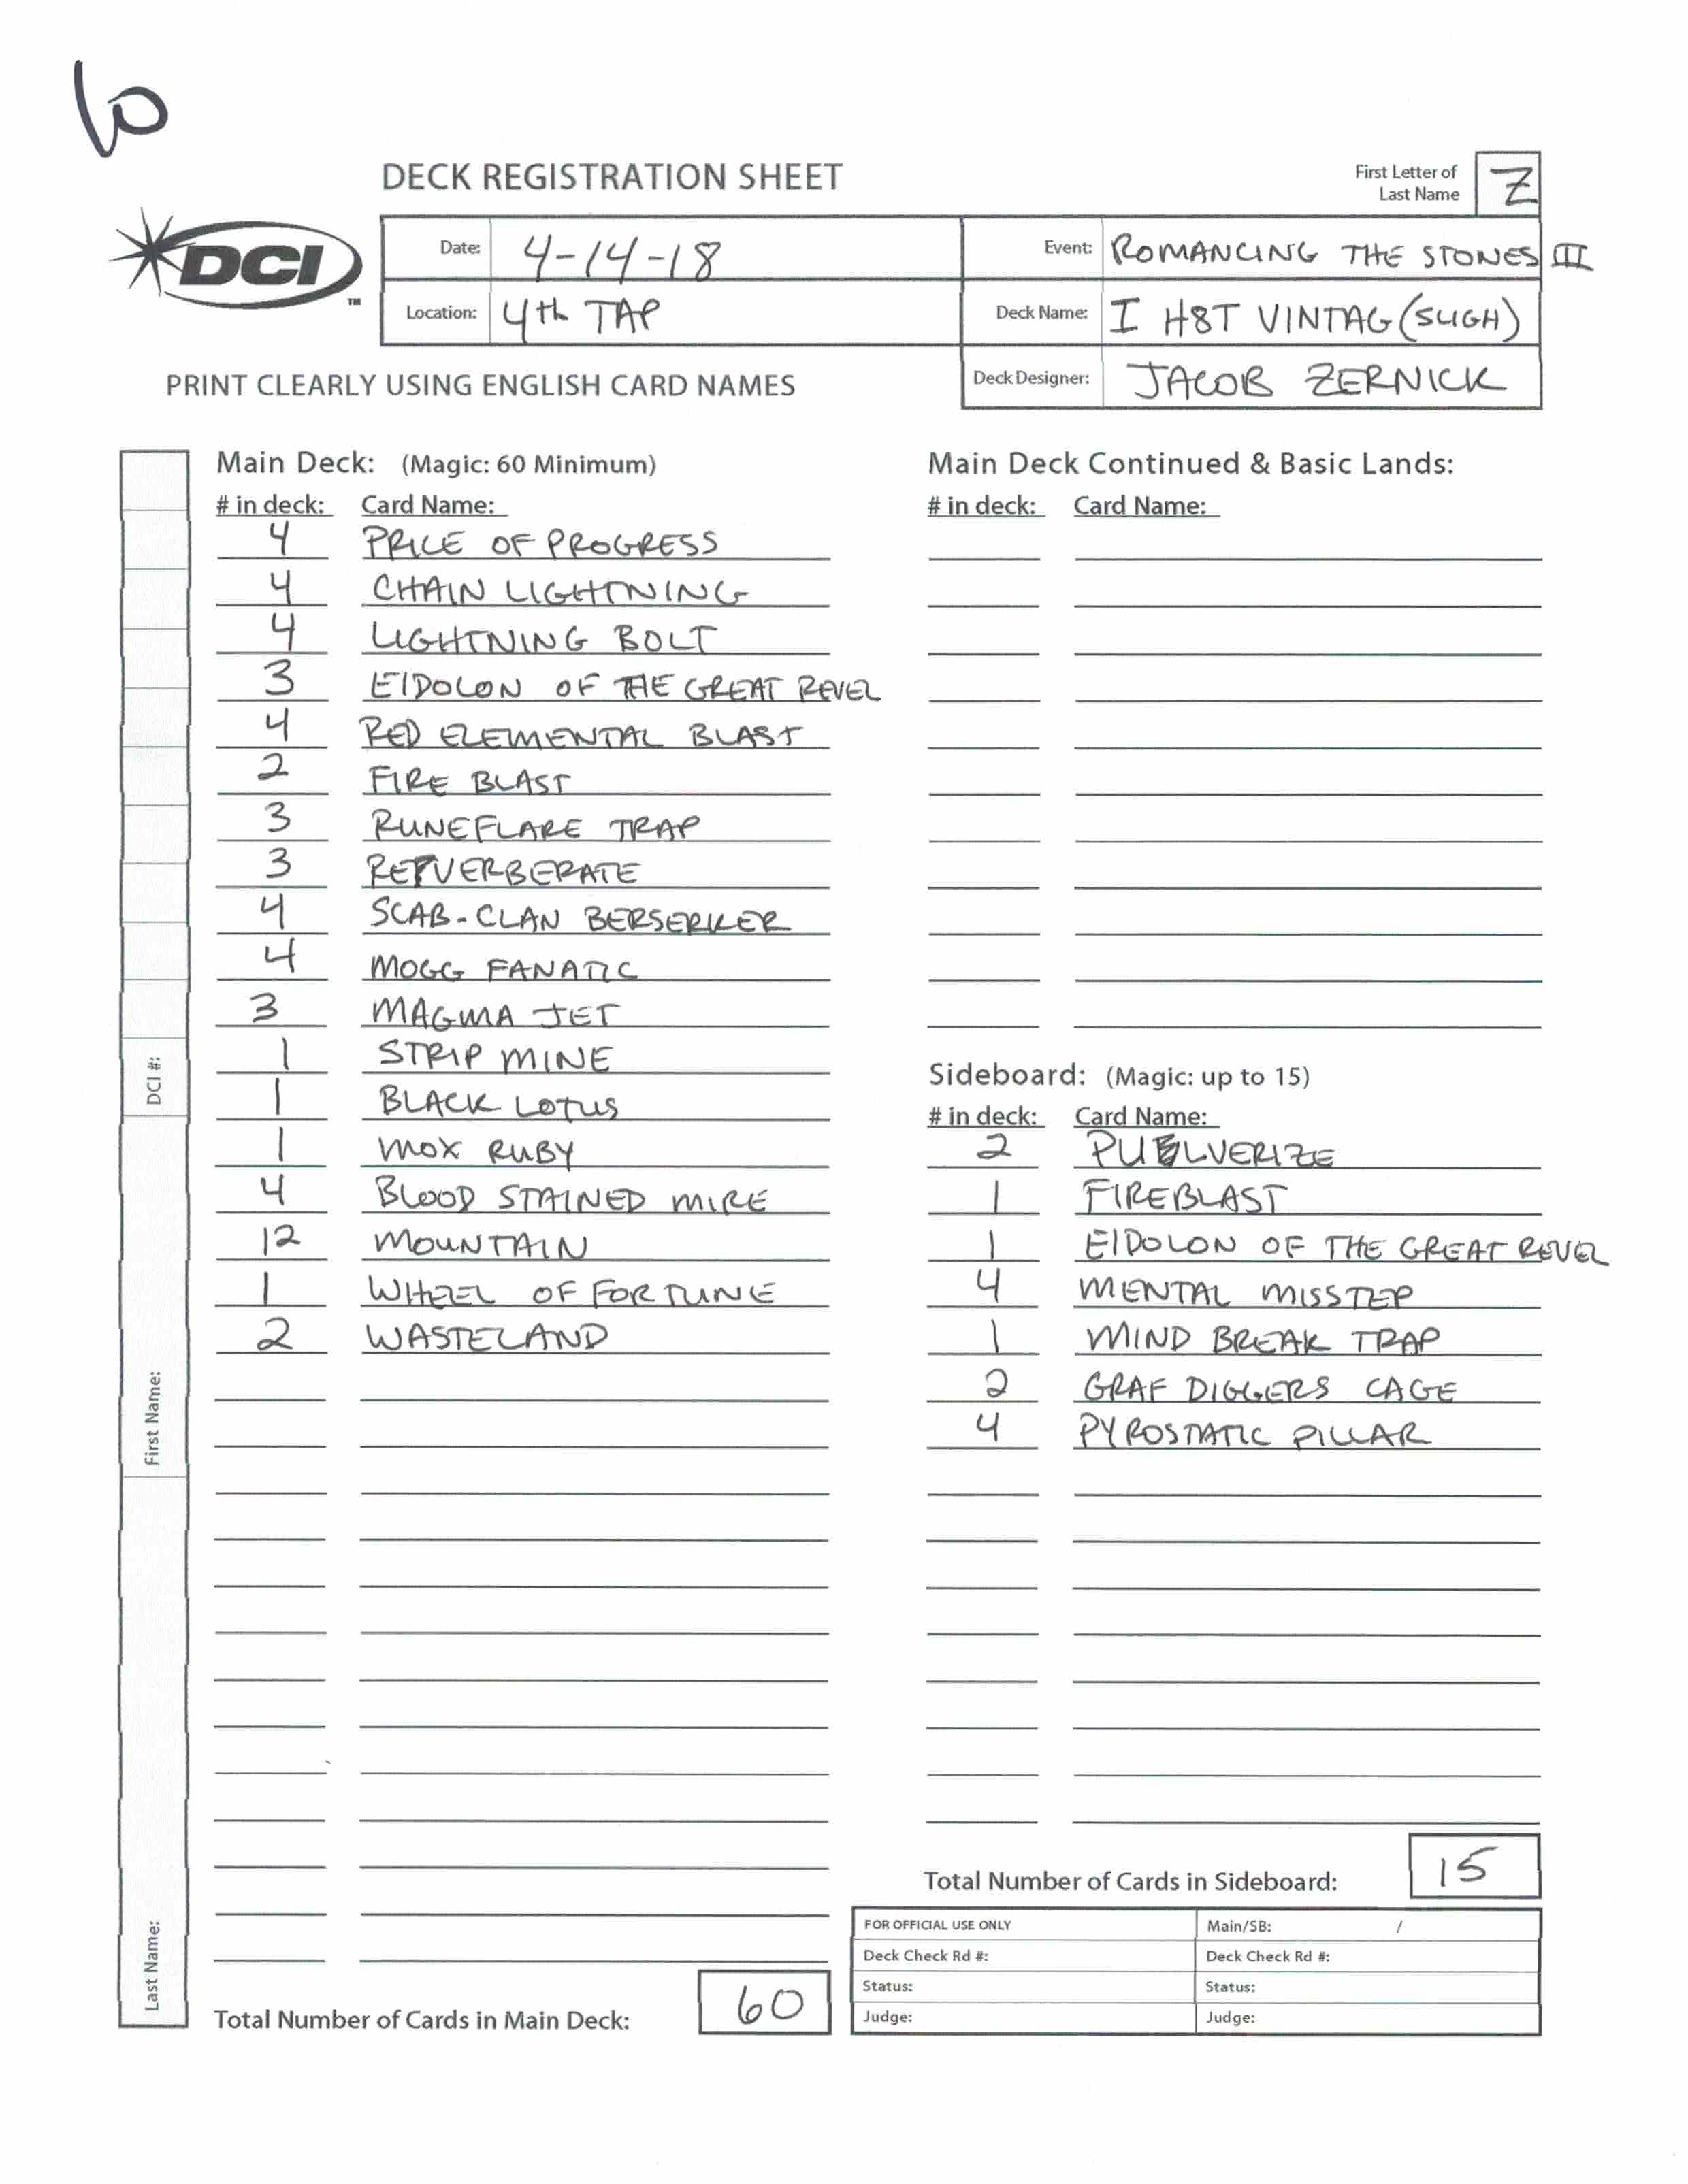 6
DECK REGISTRATION SHEET
First Letter of
Last Name
Z
DCI
TM
Date: 4-14-18
Event: ROMANCING THE STONES III
Location: 4th TAP
Deck Name: I H8T VINTAG (SLIGH)
PRINT CLEARLY USING ENGLISH CARD NAMES
Deck Designer: JACOB ZERNICK
Main Deck: (Magic: 60 Minimum)
# in deck: Card Name:
4 PRICE OF PROGRESS
4 CHAIN LIGHTNING
4 LIGHTNING BOLT
3 EIDOLON OF THE GREAT REVEL
4 RED ELEMENTAL BLAST
2 FIRE BLAST
3 RUNEFLARE TRAP
3 REVERBERATE
4 SCAB-CLAN BERSERKER
4 MOGG FANATIC
3 MAGMA JET
1 STRIP MINE
1 BLACK LOTUS
1 MOX RUBY
4 BLOOD STAINED MIRE
12 MOUNTAIN
1 WHEEL OF FORTUNE
2 WASTELAND
Total Number of Cards in Main Deck: 60
Main Deck Continued & Basic Lands:
# in deck: Card Name:
Sideboard: (Magic: up to 15)
# in deck: Card Name:
2 PULVERIZE
1 FIREBLAST
1 EIDOLON OF THE GREAT REVEL
4 MENTAL MISSTEP
1 MIND BREAK TRAP
2 GRAF DIGGERS CAGE
4 PYROSTATIC PILLAR
Total Number of Cards in Sideboard: 15
FOR OFFICIAL USE ONLY
Main/SB: /
Deck Check Rd #:
Deck Check Rd #:
Status:
Status:
Judge:
Judge:
DCI #:
First Name:
Last Name: